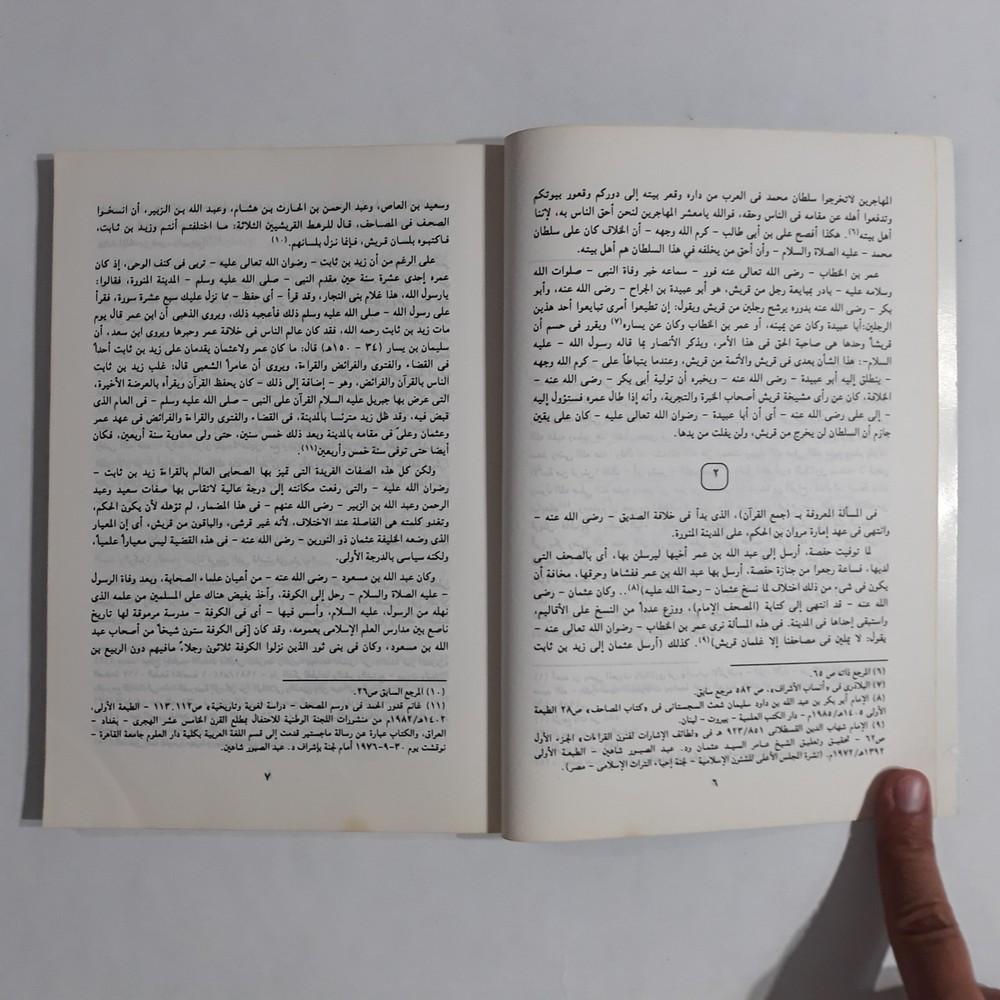 المهاجرين لاتخرجوا سلطان محمد فى العرب من داره وقعر بيته إلى دوركم وقعور بيوتكم
وتدفعوا أهله عن مقامه فى الناس وحقه، فوالله يامعشر المهاجرين لنحن أحق الناس به، لإننا
أهل بيته(٦). هكذا أفصح على بن أبى طالب – كرم الله وجهه – أن الخلاف كان على سلطان
محمد – عليه الصلاة والسلام – وأن أحق من يخلفه في هذا السلطان هم أهل بيته.
عمر بن الخطاب – رضى الله تعالى عنه فور – سماعه خبر وفاة النبى – صلوات الله
وسلامه عليه – بادر بمبايعة رجل من قريش، هو أبو عبيدة بن الجراح – رضى الله عنه، وأبو
بكر – رضى الله عنه بدوره يرشح رجلين من قريش ويقول: إن تطيعوا أمرى تبايعوا أحد هذين
الرجلين: أبا عبيدة وكان عن يمينه، أو عمر بن الخطاب وكان عن يساره(٧) ويقرر فى حسم أن
قريشاً وحدها هى صاحبة الحق فى هذا الأمر، ويذكر الأنصار بما قاله رسول الله – عليه
السلام–: هذا الشأن بعدى فى قريش والأئمة من قريش، وعندما يتباطأ على – كرم الله وجهه
– ينطلق إليه أبو عبيدة – رضى الله عنه – ويخبره أن تولية أبى بكر – رضى الله عنه –
الخلافة، كان عن رأى مشيخة قريش أصحاب الخبرة والتجربة، وأنه إذا طال عمره فستؤول إليه
– إلى على رضى الله عنه – أى أن أبا عبيدة – رضوان الله تعالى عليه – كان على يقين
جازم أن السلطان لن يخرج من قريش، ولن يفلت من يدها.
٢
فى المسألة المعروفة بـ (جمع القرآن)، الذى بدأ فى خلافة الصديق – رضى الله عنه –
وانتهى فى عهد إمارة مروان بن الحكم، على المدينة المنورة.
لما توفيت حفصة، أرسل إلى عبد الله بن عمر أخيها ليرسلن بها، أى بالصحف التى
لديها، فساعة رجعوا من جنازة حفصة، أرسل بها عبد الله بن عمر ففشاها وحرقها، مخافة أن
يكون فى شىء من ذلك اختلاف لما نسخ عثمان – رحمة الله عليه)(٨).. وكان عثمان – رضى
الله عنه – قد انتهى إلى كتابة (المصحف الإمام)، ووزع عدداً من النسخ على الأقاليم،
واستبقى إحداها فى المدينة. فى هذه المسألة نرى عمر بن الخطاب – رضوان الله تعالى عنه –
يقول: لا يملين فى مصاحفنا إلا غلمان قريش)(٩). كذلك (أرسل عثمان إلى زيد بن ثابت
(٦) المرجع ذاته ص ٦٥.
(٧) البلاذرى فى «أنساب الأشراف»، ص ٥٨٢ مرجع سابق.
(٨) الإمام أبو بكر بن عبد الله بن داود سليمان شعث السجستانى فى «كتاب المصاحف» ص٢٨ الطبعة
الأولى ١٤٠٥هـ/١٩٨٥م – دار الكتب العلمية – بيروت – لبنان.
(٩) الإمام شهاب الدين القسطلانى ٩٢٣/٨٥١ هـ فى «لطائف الإشارات لفنون القراءات» الجزء الأول
ص٦٢ – تحقيق وتعليق الشيخ عامر السيد عثمان ود. عبد الصبور شاهين – الطبعة الأولى
١٣٩٢هـ/١٩٧٢م. (نشرة المجلس الأعلى للشئون الإسلامية – لجنة إحياء التراث الإسلامى – مصر).
٦
وسعيد بن العاص، وعبد الرحمن بن الحارث بن هشام، وعبد الله بن الزبير، أن انسخوا
الصحف فى المصاحف، قال للرهط القريشيين الثلاثة: ما اختلفتم أنتم وزيد بن ثابت،
فاكتبوه بلسان قريش، فإنما نزل بلسانهم.(١٠)
على الرغم من أن زيد بن ثابت – رضوان الله تعالى عليه – تربى فى كنف الوحى، إذ كان
عمره إحدى عشرة سنة حين مقدم النبى – صلى الله عليه وسلم – المدينة المنورة، فقالوا:
يارسول الله، هذا غلام بنى النجار، وقد قرأ – أى حفظ – مما نزل عليك سبع عشرة سورة، فقرأ
على رسول الله – صلى الله عليه وسلم ذلك فأعجبه ذلك، ويروى الذهبى أن ابن عمر قال يوم
مات زيد بن ثابت رحمه الله، فقد كان عالم الناس فى خلافة عمر وحبرها ويروى ابن سعد، أن
سليمان بن يسار (٣٤ – ١٥٠هـ) قال: ما كان عمر ولاعثمان يقدمان على زيد بن ثابت أحداً
فى القضاء والفتوى والفرائض والقراءة، ويروى أن عامراً الشعبى قال: غلب زيد بن ثابت
الناس بالقرآن والفرائض، وهو – إضافة إلى ذلك – كان يحفظ القرآن ويقرأه بالعرضة الأخيرة،
التى عرض بها جبريل عليه السلام القرآن على النبى – صلى الله عليه وسلم – فى العام الذى
قبض فيه، وقد ظل زيد مترئسا بالمدينة، فى القضاء والفتوى والقراءة والفرائض فى عهد عمر
وعثمان وعلىّ فى مقامه بالمدينة وبعد ذلك خمس سنين، حتى ولى معاوية سنة أربعين، فكان
أيضا حتى توفى سنة خمس وأربعين(١١).
ولكن كل هذه الصفات الفريدة التى تميز بها الصحابى العالم بالقراءة زيد بن ثابت –
رضوان الله عليه – والتى رفعت مكانته إلى درجة عالية لاتقاس بها صفات سعيد وعبد
الرحمن وعبد الله بن الزبير – رضى الله عنهم – فى هذا المضمار، لم تؤهله لأن يكون الحكم،
وتغدو كلمته هى الفاصلة عند الاختلاف، لأنه غير قرشى، والباقون من قريش، أى إن المعيار
الذى وضعه الخليفة عثمان ذو النورين – رضى الله عنه – فى هذه القضية ليس معياراً علمياً،
ولكنه سياسى بالدرجة الأولى.
وكان عبد الله بن مسعود – رضى الله عنه – من أعيان علماء الصحابة، وبعد وفاة الرسول
– عليه الصلاة والسلام – رحل إلى الكوفة، وأخذ يفيض هناك على المسلمين من علمه الذى
نهله من الرسول، عليه السلام، وأسس فيها – أى فى الكوفة – مدرسة مرموقة لها تاريخ
ناصع بين مدارس العلم الإسلامى بعمومه، وقد كان [فى الكوفة ستون شيخاً من أصحاب عبد
الله بن مسعود، وكان فى بنى ثور الذين نزلوا الكوفة ثلاثون رجلاً، مافيهم دون الربيع بن
(١٠) المرجع السابق ص٢٦.
(١١) غانم قدور الحمد فى «رسم المصحف – دراسة لغوية وتاريخية» ص١١٣،١١٢ – الطبعة الأولى،
١٤٠٢هـ/١٩٨٢م من منشورات اللجنة الوطنية للاحتفال بمطلع القرن الخامس عشر الهجرى – بغداد –
العراق، والكتاب عبارة عن رسالة ماجستير قدمت إلى قسم اللغة العربية بكلية دار العلوم جامعة القاهرة –
نوقشت يوم ٣٠–٩–١٩٧٦ أمام لجنة بإشراف د. عبد الصبور شاهين.
٧